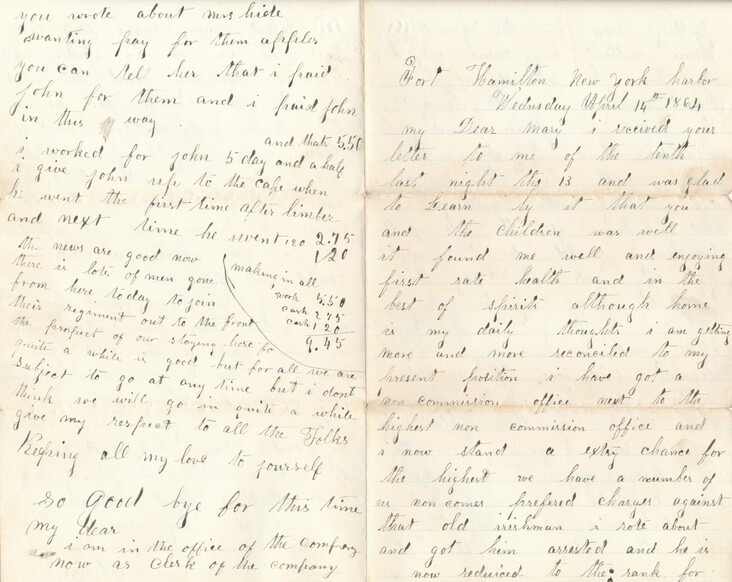 Fort Hamilton New York harbor
Wednsday April 14th 1864
my Dear Mary i received your
letter to me of the tenth
last night the 13 and was glad
to Learn by it that you
and the children was well
it found me well and enjoying
first rate health and in the
best of spirits although home
is my daily thoughts i am getting
more and more reconciled to my
present position i have got a
non commission office next to the
highest non commission office and
i now stand a extry chance for
the highest we have a number of
us non comes prefered charges against
that old irishman i rote about
and got him arrested and he is
now reduced to the rank for
you wrote about mrs hide
wanting pay for them apples
you can tel her that i paid
john for them and i paid john
in this way
and thats 5.50
i worked for john 5 day and a half
i give john up to the cape when
he went the first time after limber
and next time he went 120 2.75
1.20
the news are good now
there is lots of men gone
from here today to join
their regiment out to the front
the prospect of our staying here for
quite a while is good but for all we are
subject to go at any time but i dont
think we will go in quite a while
give my respect to all the Folks
Keeping all my love to yourself
making in all
work 5.50
cash 2.75
cash 1 20
9.45
so good bye for this time
my dear
i am in the office of the company
now as Clerk of the company